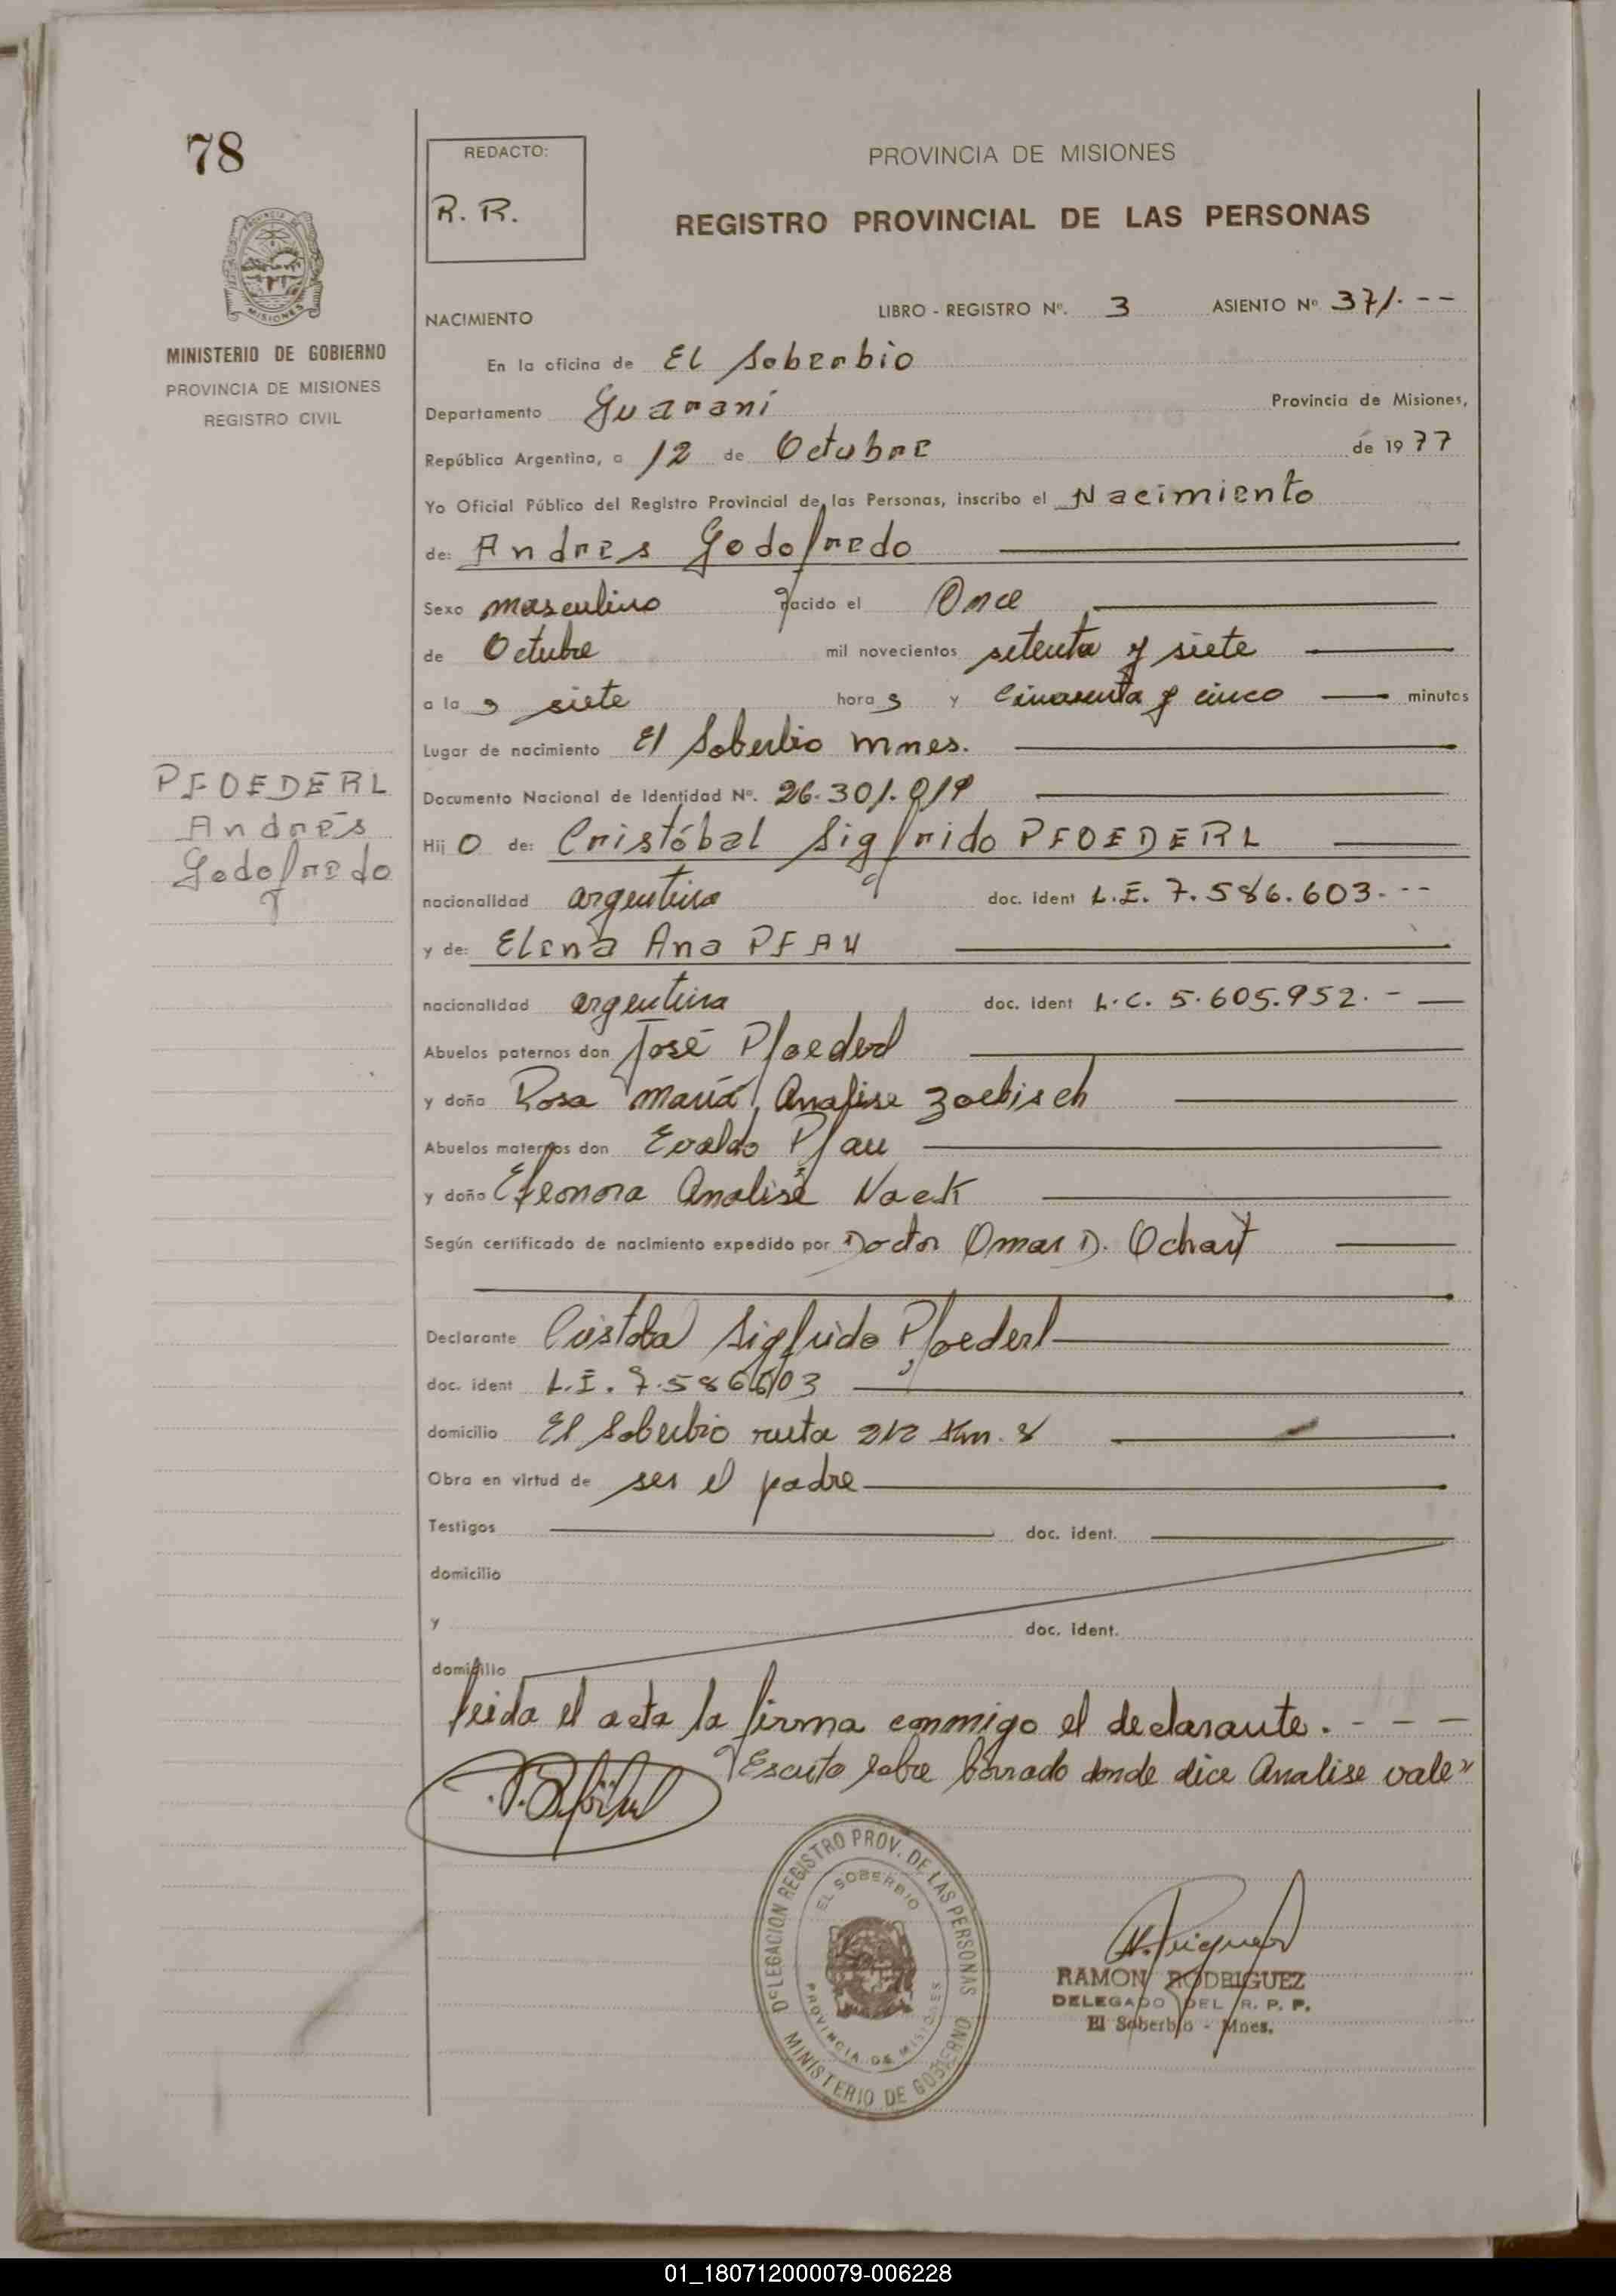 78
REDACTO:
R. R.
PROVINCIA DE MISIONES
REGISTRO PROVINCIAL DE LAS PERSONAS
MISIONES
MINISTERIO DE GOBIERNO
PROVINCIA DE MISIONES
REGISTRO CIVIL
NACIMIENTO
LIBRO - REGISTRO Nº. 3 ASIENTO Nº 371.--
En la oficina de El Soberbio
Departamento Guarani Provincia de Misiones,
República Argentina, a 12 de Octubre de 1977
Yo Oficial Público del Registro Provincial de las Personas, inscribo el Nacimiento
de: Andres Godofredo
Sexo masculino nacido el Once
de Octubre mil novecientos setenta y siete
a la s siete hora s y Cincuenta y cinco minutos
Lugar de nacimiento El Soberbio Mnes.
PFOEDERL
Andrés
Godofredo
Documento Nacional de Identidad Nº. 26.301.019
Hij O de: Cristóbal Sigfrido PFOEDERL
nacionalidad argentina doc. ident L.E. 7.586.603.--
y de: Elena Ana PFAU
nacionalidad argentina doc. ident L.C. 5.605.952.-
Abuelos paternos don José Pfoederl
y doña Rosa María Analise Zoebisch
Abuelos maternos don Evaldo Pfau
y doña Eleonora Analise Naek
Según certificado de nacimiento expedido por Doctor Omar D. Ochart
Declarante Cristobal Sigfrido Pfoederl
doc. ident L.E. 7.586603
domicilio El Soberbio ruta 212 Km. 8
Obra en virtud de ser el padre
Testigos doc. ident.
domicilio
y doc. ident.
domicilio
leida el acta la firma conmigo el declarante. - - -
"Escrito sobre borrado donde dice Analise vale"
DELEGACION REGISTRO PROV. DE LAS PERSONAS
EL SOBERBIO
PROVINCIA DE MISIONES
MINISTERIO DE GOBIERNO
RAMON RODRIGUEZ
DELEGADO DEL R. P. P.
El Soberbio - Mnes.
01_180712000079-006228